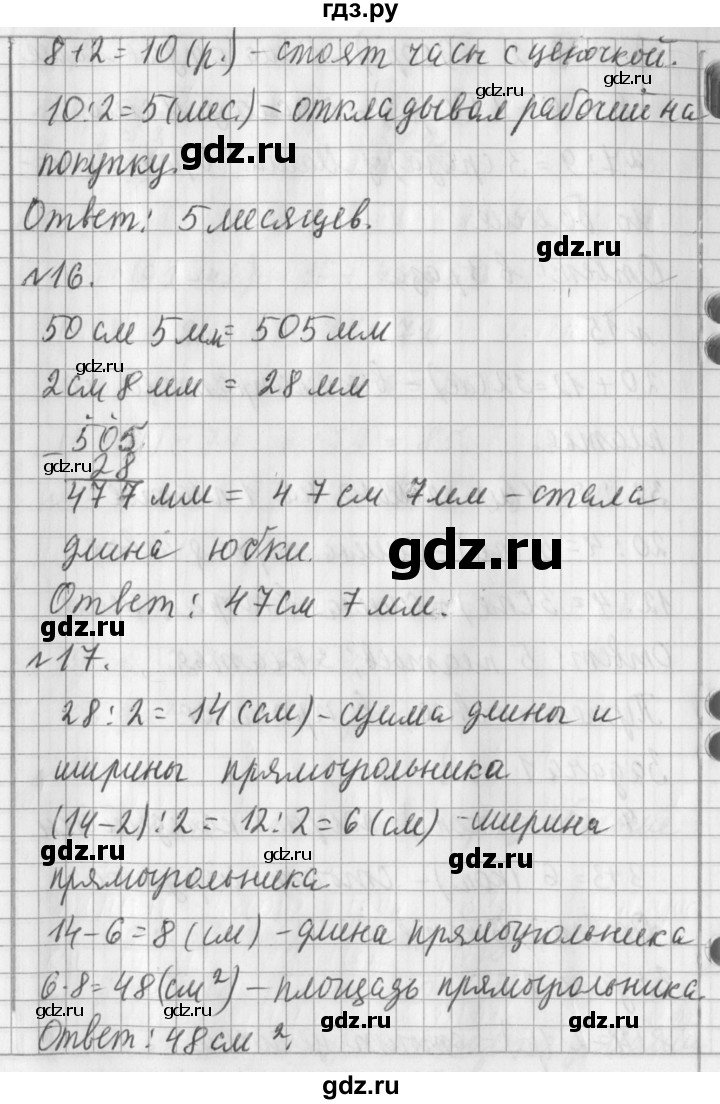 гдз.ру
8+2=10 (р.) - стоят часы с цепочкой.
gdz.ru
10:2=5 (мес.) - откладывал рабочий на
gdz.ru
gdz.ru
покупку.
Ответ: 5 месяцев.
gdz.ru
№16.
50 см 5 мм = 505 мм
gdz.ru
2 см 8 мм = 28 мм
505
gdz.ru
- 28
477 мм = 47 см 7 мм - стала
длина юбки.
gdz.ru
Ответ: 47 см 7 мм.
gdz.ru
gdz.ru
№17.
28:2 = 14 (см) - сумма длины и
ширины прямоугольника
(14-2):2 = 12:2 = 6 (см) - ширина
gdz.ru
gdz.ru
gdz.ru
прямоугольника
14-6=8 (см) - длина прямоугольника
6·8=48 (см²) - площадь прямоугольника.
gdz.ru
gdz.ru
gdz.ru
Ответ: 48 см².
gdz.ru